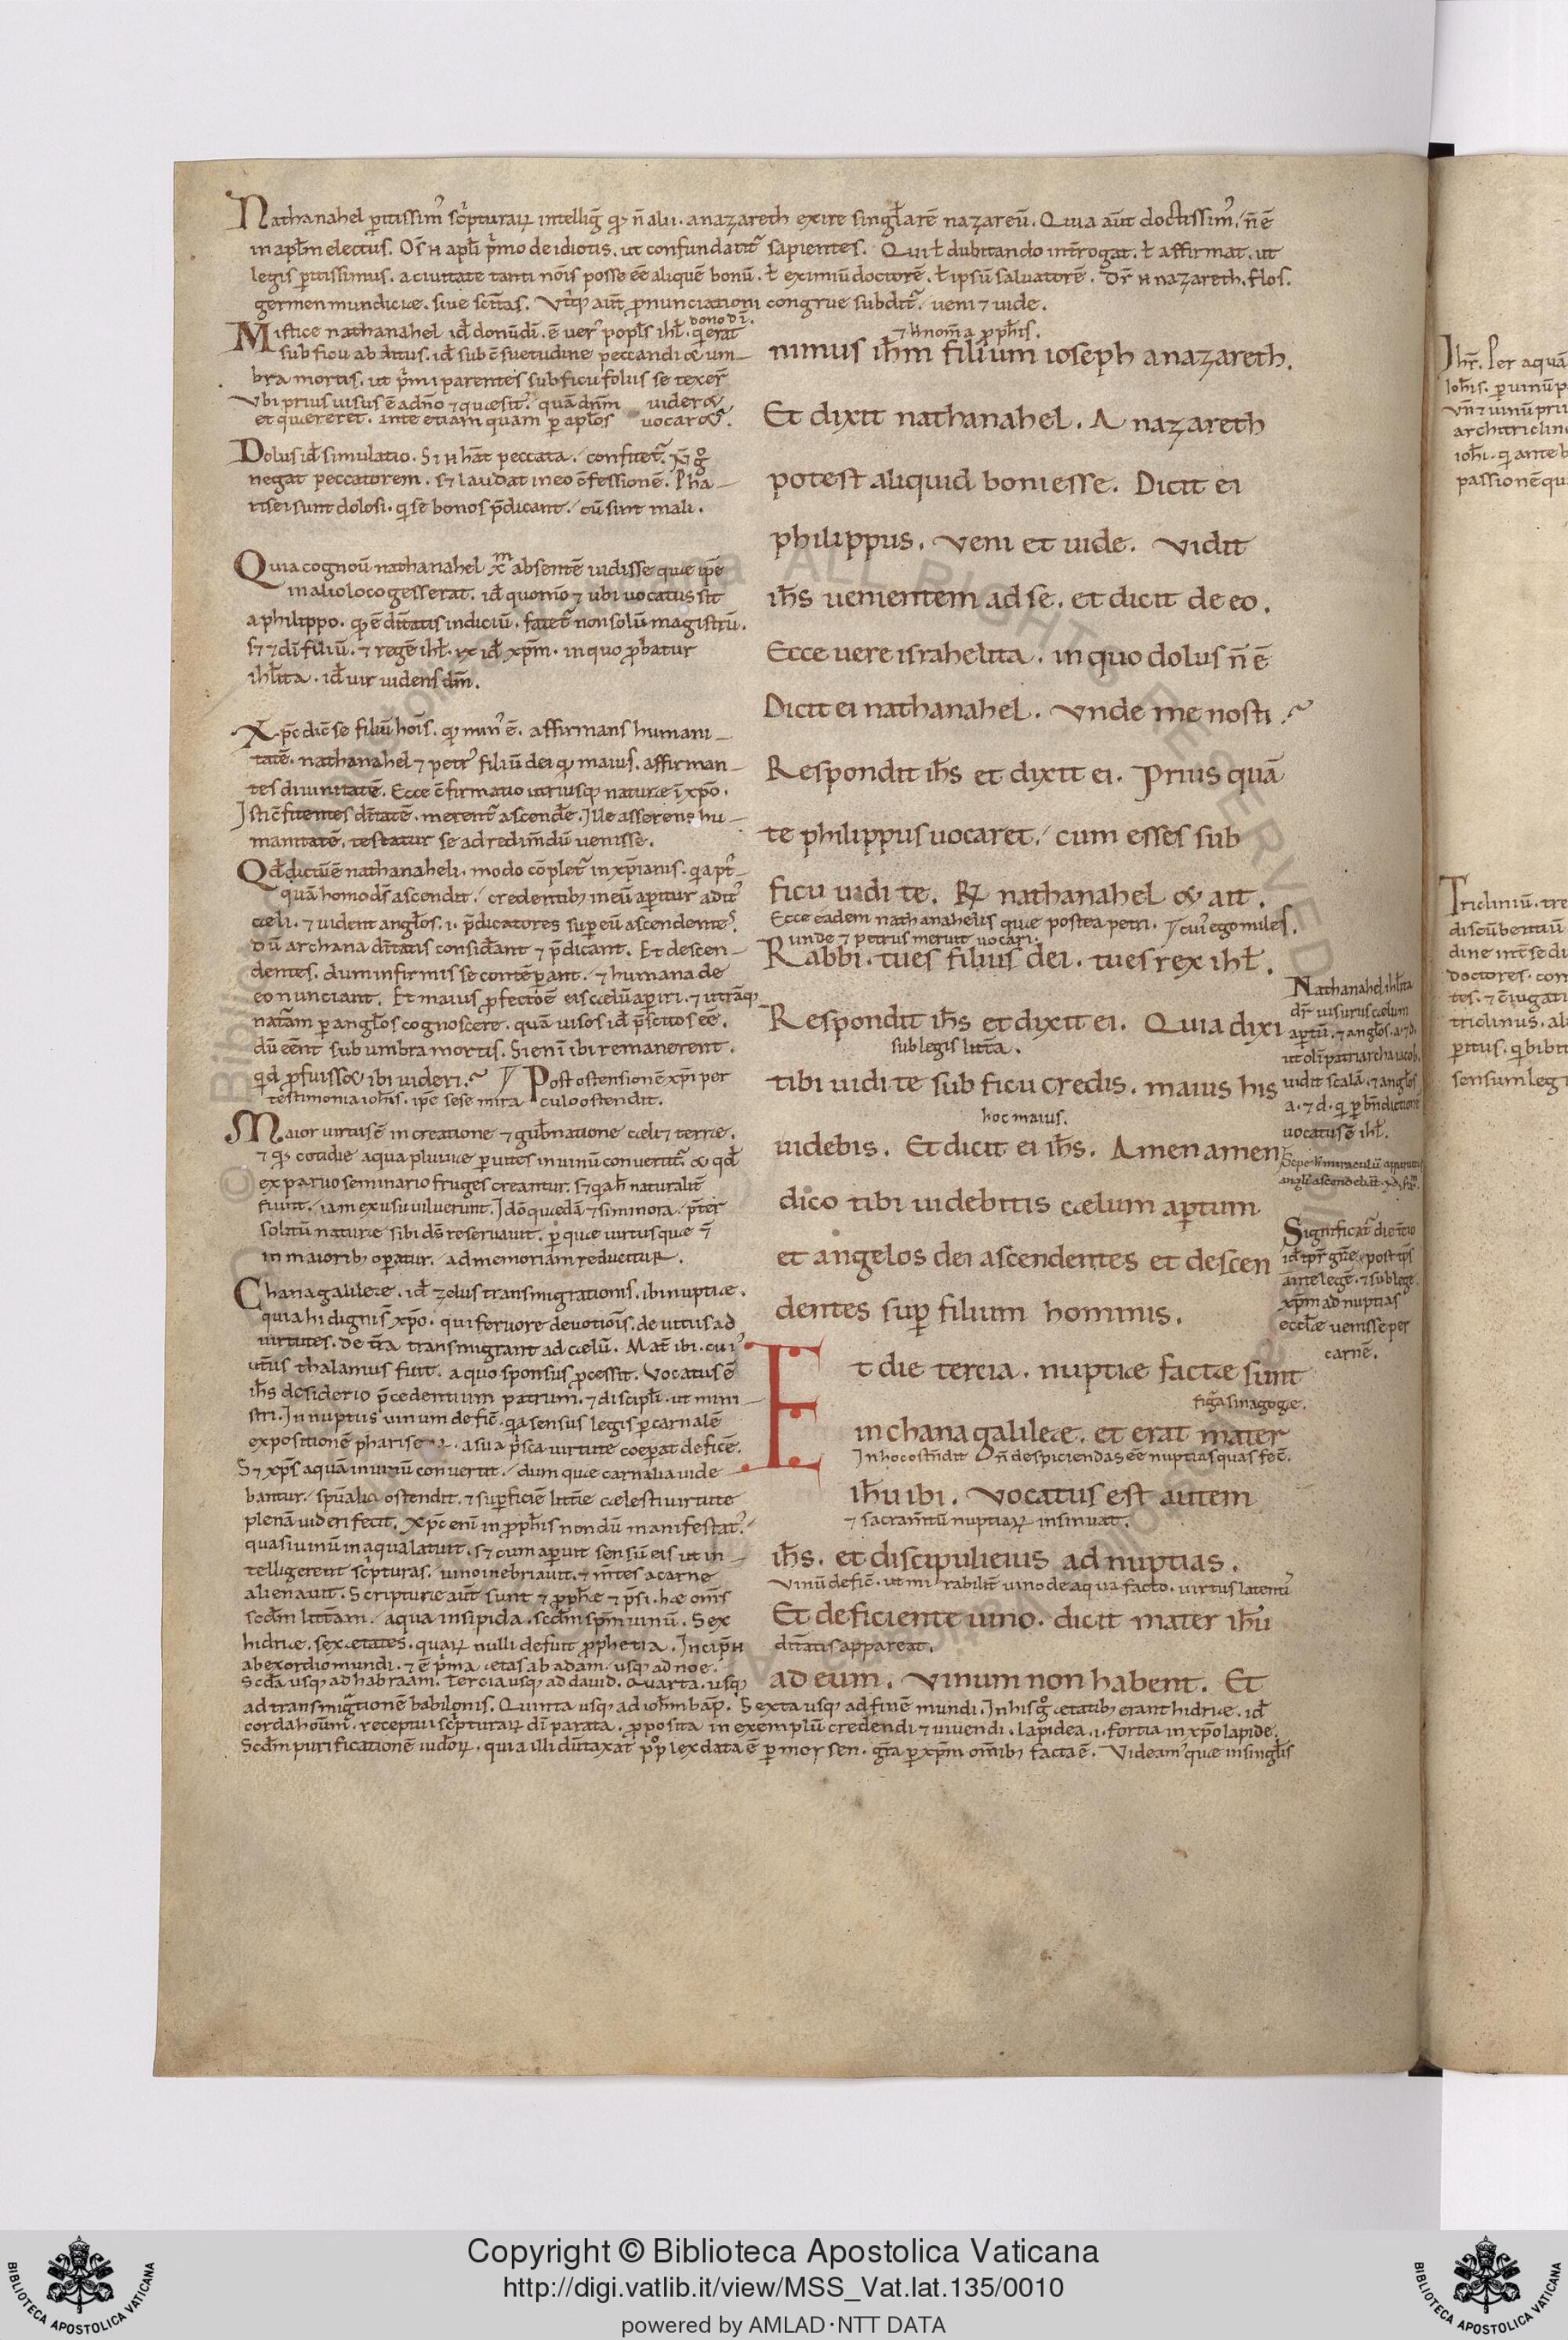 Nathanahel ꝑitissim᾽ sc̾pturaꝝ intellig̅ qꝫ n̅ alii. a nazareth exire singl̅are̅ nazareu̅. Quia au̅t doctissim᾽, n̅ e̅
in apl̅m electus. Om̅s apl̅i p̾mo de idiotis, ut confundat᾽ sapientes. Qui ł dubitando int̅rogat, ł affirmat, ut
legis ꝑitissimus, a ciuitate tanti no̅is posse e̅e̅ alique̅ bonu̅, ł eximiu̅ doctore̅, ł ipsu̅ saluatore̅. Dr̅ nazareth, flos,
germen mundiciae, siue sc̅itas. Vt̾qꝫ aut̅ ꝓnunciationi congrue subdit᾽. ueni ⁊ uide.
Mistice nathanahel id̅ donu̅ di̅, e̅ uer᾽ popl̅s ihl̅. q̾ erat dono di̅.
sub ficu abditus, id̅ sub c̅suetudine peccandi & um-
bra mortis, ut p̾mi parentes sub ficu foliis se texer̅
Vbi prius uisus e̅ a dn̅o ⁊ quaesit᾽, qua̅ dn̅m uider&
et quaereret. Ante etiam quam ꝑ apl̅os uocar&᾽.
Dolus id̅ simulatio. Si h̅at peccata, confitet᾽. Xp̅c g̊
negat peccatorem, sꝫ laudat in eo c̅fessione̅. Pha-
risei sunt dolosi, q̾ se bonos p̅dicant, cu̅ sint mali.
Quia cognou̅ nathanahel xp̅m absente̅ uidisse quae ip̅e
in alio loco gesserat, id̅ quom̅o ⁊ ubi uocatus sit
a philippo, qꝫ e̅ di̅tatis indiciu̅, fatet᾽ non solu̅ magistru̅,
sꝫ ⁊ di̅ filiu̅, ⁊ rege̅ ihl̅. rx id̅ xp̅m. in quo ꝓbatur
ihl̅ita, id̅ uir uidens dm̅.
Xp̅c dic̅ se filiu̅ ho̅is, qꝫ min᾽ e̅, affirmans humani-
tate̅. nathanahel ⁊ petr᾽ filiu̅ dei qꝫ maius, affirman-
tes diuinitate̅. Ecce c̅firmatio utriusqꝫ naturae i̅ xp̅o.
Isti c̅fitentes di̅tate̅, merent᾽ ascende̅. Ille asserens hu-
manitate̅, testatur se ad redim̅du̅ uenisse.
Qd̅ dictu̅ e̅ nathanaheli, modo co̅plet᾽ in xp̅ianis. q̾a pt᾽
qua̅ homo ds̅ ascendit, credentibꝫ in eu̅ aꝑitur adit᾽
caeli, ⁊ uident angl̅os, .i. p̅dicatores suꝑ eu̅ ascendentes,
du̅ archana di̅tatis consid̅ant ⁊ p̅dicant. Et descen-
dentes, dum infirmis se conte̅perant, ⁊ humana de
eo nunciant. Et maius ꝓfecto e̅ eis caelu̅ aꝑiri, ⁊ utra̅qꝫ
nat̅am ꝑ angl̅os cognoscere, qua̅ uisos id̅ p̅scitos e̅e̅,
du̅ ee̅nt sub umbra mortis. Si eni̅ ibi remanerent,
q̾d ꝓfuiss& ibi uideri? Post ostensione̅ xp̅i per
testimonia ioh̅is, ip̅e sese mira culo ostendit.
Maior uirtus e̅ in creatione ⁊ gub̅natione caeli ⁊ terrae,
⁊ qꝫ cotidie aqua pluuiae ꝑ uites in uinu̅ conuertit᾽, & qd̅
ex paruo seminario fruges creantur, sꝫ q̾a h̅ naturalit̅
fiunt, iam ex usu uiluerunt. Ido̅ quaeda̅ ⁊ si minora, p̅ter
solitu̅ naturae sibi ds̅ reseruauit, ꝑ quae uirtus quae e̅
in maioribꝫ oꝑatur, ad memoriam reducitur.
Chana galileae, id̅ zelus transmigrationis. ibi nuptiae,
quia hi digni s̅ xp̅o, qui feruore deuotio̅is, de uitiis ad
uirtutes, de t̅ra transmigrant ad caelu̅. Mat̅ ibi, cui᾽
ut̅us thalamus fuit, a quo sponsus ꝓcessit. Vocatus e̅
ih̅s desiderio p̅cedentium patrum, ⁊ discipl̅i, ut mini-
stri. In nuptiis uinum defic̅, q̾a sensus legis ꝑ carnale̅
expositione̅ phariseoꝝ, a sua p̾sca uirtute coeꝑat defice̅.
Sꝫ xp̅s aqua̅ in uinu̅ conuertit, dum quae carnalia uide-
bantur, spu̅alia ostendit, ⁊ suꝑficie̅ litt̅ae caelesti uirtute
plena̅ uideri fecit. Xp̅c eni̅ in ꝓph̅is nondu̅ manifestat᾽,
quasi uinu̅ in aqua latuit. sꝫ cum aꝑuit sensu̅ eis ut in-
telligerent sc̾pturas, uino inebriauit, ⁊ m̅tes a carne
alienauit. Scripturae aut̅ sunt ⁊ ꝓph̅ae ⁊ p̅si. hae om̅s
scd̅m litt̅am, aqua insipida, scd̅m sp̅m uinu̅. Sex
hidriae, sex aetates, quaꝝ nulli defuit ꝓphetia. Incip̅
ab exordio mundi, ⁊ e̅ p̾ma aetas ab adam, usqꝫ ad noe.
Scd̅a usqꝫ ad habraam. Tercia usqꝫ ad dauid. Quarta, usqꝫ
ad transmig᾽tione̅ babilonis. Quinta usqꝫ ad ioh̅m bap̅. Sexta usqꝫ ad fine̅ mundi. In his g̊ aetatibꝫ erant hidriae, id̅
corda ho̅um, receptui sc̾pturaꝝ di̅ parata, ꝓposita in exemplu̅ credendi ⁊ uiuendi. lapidea .i. fortia in xp̅o lapide.
Scd̅m purificatione̅ iud̅oꝝ, quia illi du̅taxat pp̊lo lex data e̅ ꝑ moysen. gr̅a ꝑ xp̅m om̅ibꝫ facta e̅. Videam᾽ quae in singl̅is
⁊ h̅ nom̅ a ꝓph̅is.
nimus ih̅m filium ioseph a nazareth.
Et dixit nathanahel. A nazareth
potest aliquid boni esse. Dicit ei
philippus. Veni et uide. Vidit
ih̅s uenientem ad se, et dicit de eo.
Ecce uere israhelita, in quo dolus n̅ e̅
Dicit ei nathanahel. Vnde me nosti?
Respondit ih̅s et dixit ei. Prius qua̅
te philippus uocaret, cum esses sub
ficu uidi te. R̷ nathanahel & ait.
Ecce eadem nathanahelis quae postea petri. cui᾽ ego miles.
unde ⁊ petrus meruit uocari.
Rabbi. tu es filius dei. tu es rex ihl̅.
Respondit ih̅s et dixit ei. Quia dixi
sub legis litt̅a.
tibi uidi te sub ficu credis. maius his
hoc maius.
uidebis. Et dicit ei ih̅s. Amen amen
dico tibi uidebitis caelum aꝑtum
et angelos dei ascendentes et descen
dentes suꝑ filium hominis.
Et die tercia, nuptiae factae sunt
fig᾽a sinagogae.
in chana galileae, et erat mater
In hoc oste̅dit n̅ despiciendas e̅e̅ nuptias quas fec̅.
ih̅u ibi. Vocatus est autem
⁊ sacram̅tu̅ nuptiaꝝ insinuat.
ih̅s, et discipuli eius ad nuptias.
Vinu̅ defic̅, ut mirabilit̅ uino de aqua facto, uirtus latenti᾽
Et deficiente uino, dicit mater ih̅u
di̅tatis appareat.
ad eum. Vinum non habent. Et
Nathanahel ihl̅ita
dr̅ uisurus caelum
aꝑtu̅, ⁊ angl̅os .a. ⁊ d.
ut oli̅ patriarcha iacob,
uidit scala̅, ⁊ angl̅os
a. ⁊ d. q̾ ꝑ bn̅dictione̅
uocatus e̅ ihl̅.
Significat᾽ die t̅cio
ante lege̅, ⁊ sub lege,
xp̅m ad nuptias
eccl̅ae uenisse per
carne̅.
Copyright © Biblioteca Apostolica Vaticana
http://digi.vatlib.it/view/MSS_Vat.lat.135/0010
powered by AMLAD·NTT DATA
BIBLIOTECA APOSTOLICA VATICANA
BIBLIOTECA APOSTOLICA VATICANA